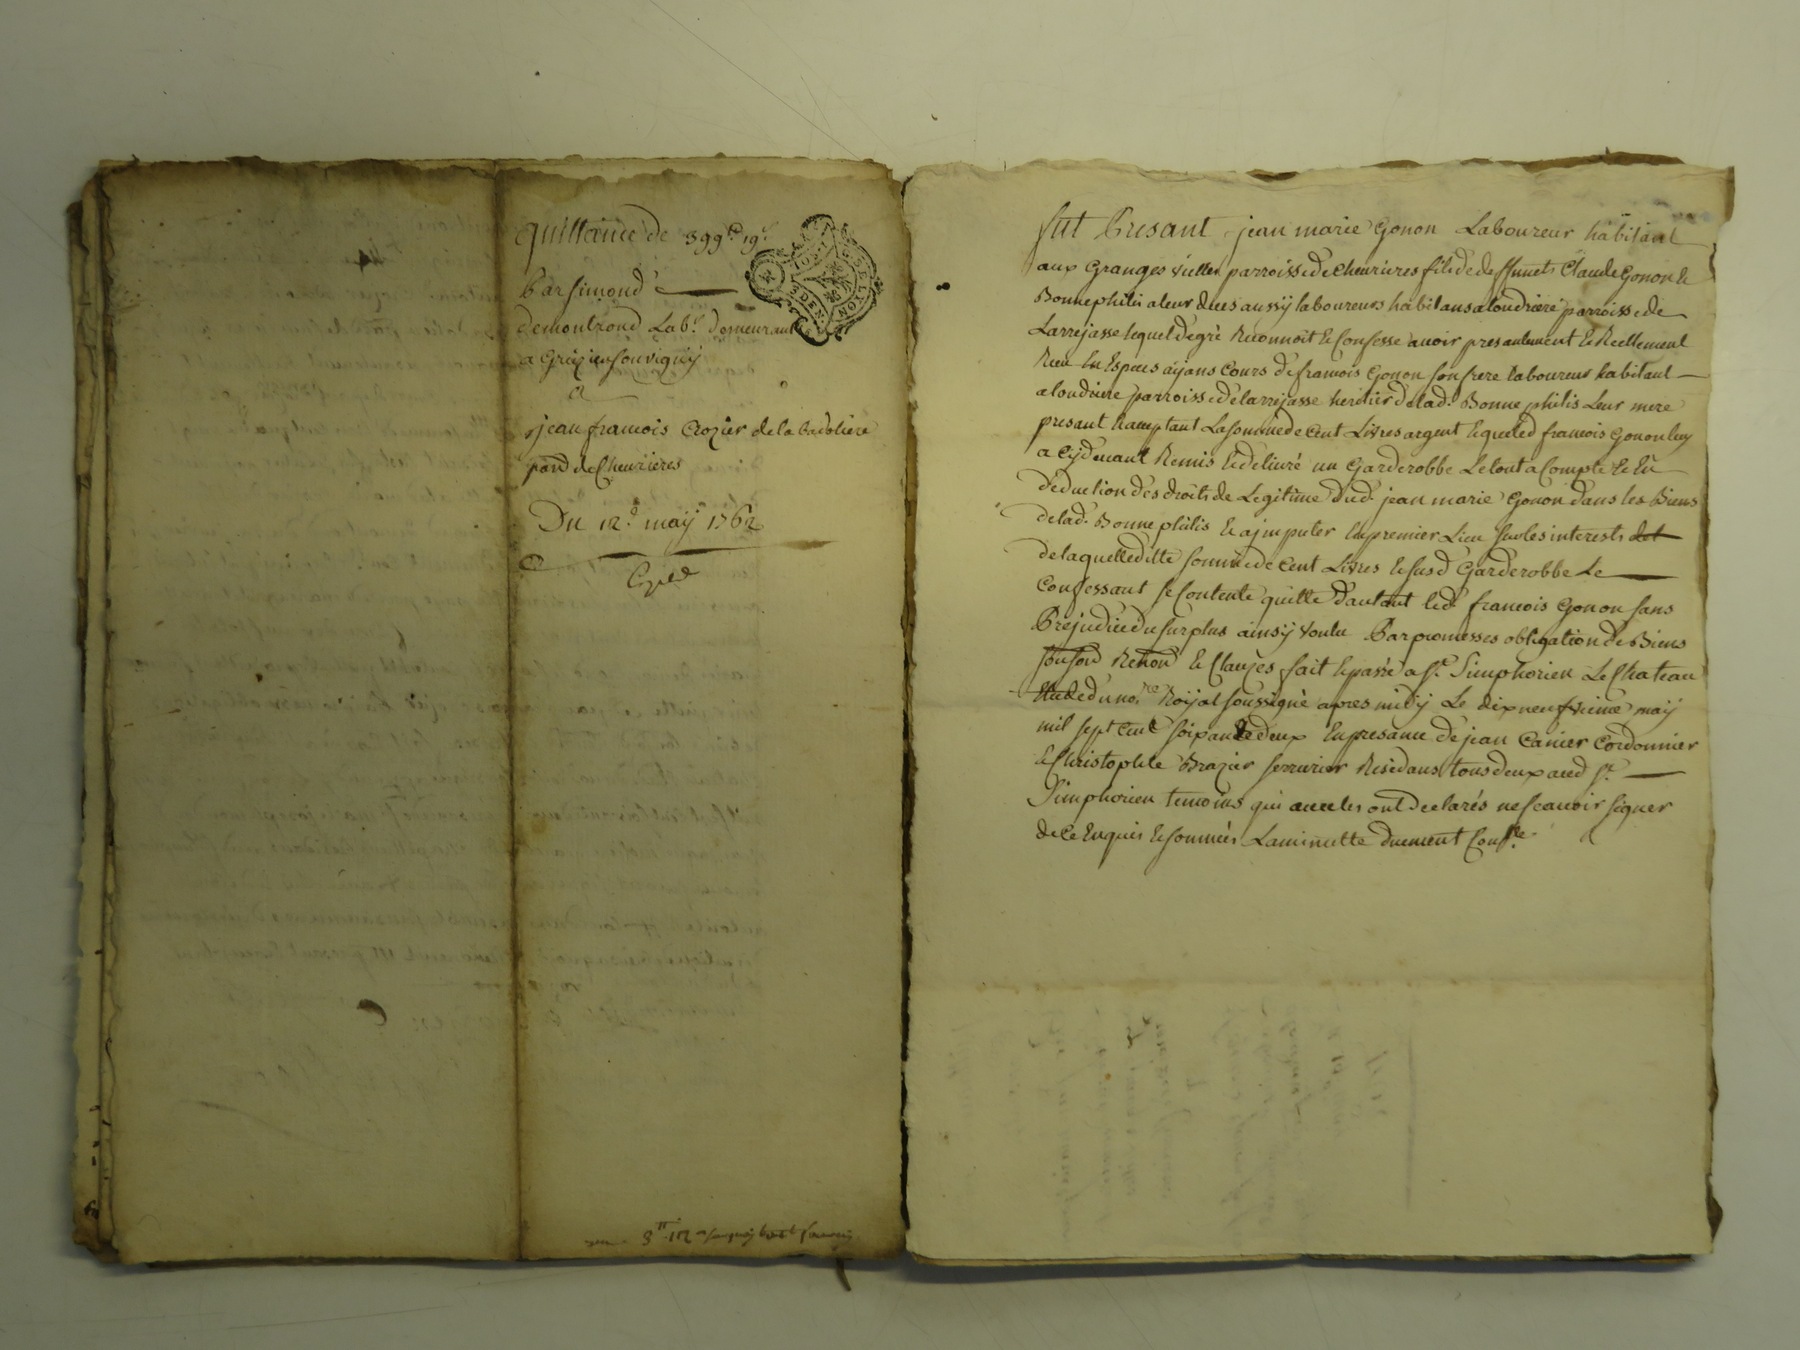 quittance de 399lt 19s
par simond
demontrond Labr. demeurant
a Grezieu souvigny
a
jean francois Crozier de la badoliere
parr. de Chevrieres
Du 12e may 1762
Exped
GEN. DE LYON
fut Present jean marie Gonon Laboureur habitant
aux Granges parroisse de Chevrieres fils de deffunets Claude Gonon &
Bonne philis aleur vivans aussy laboureurs habitans a loudriere parroisse de
Larrejasse lequel de gré Reconnoit & Confesse avoir presantement & Reellement
Reçu En Especes aÿans Cours de francois Gonon son frere laboureur habitant
a loudriere parroisse de larrejasse heritier de lad. Bonne philis Leur mere
presant & acceptant La somme de Cent Livres argent & que led francois Gonon luy
a Cÿ devant Remis & delivré un Garderobbe Le tout a Compte & En
deduction des droits de Legitime dud. jean marie Gonon dans les Biens
de lad. Bonne philis & a jmputer En premier Lieu sur les interests det
de laquelle ditte somme de Cent Livres & susd Garderobbe Le
Confessant se Contente quitte d'autant led. francois Gonon sans
Prejudice du surplus ainsÿ voulu Par promesses obligation de Biens
Renon & Clauses fait & passé a St. Simphorien Le Chateau
Etude du nore. Roÿal soussigné apres midÿ Le dix neufvieme maÿ
mil sept Cent soixante deux En presance de jean Canier Cordonnier
& Christophle Brazier serrurier Residans tous deux aud St.
Simphorien temoins qui avec les ont declarés ne scavoir signer
de ce Enquis & sommés La minutte duement Conlle.